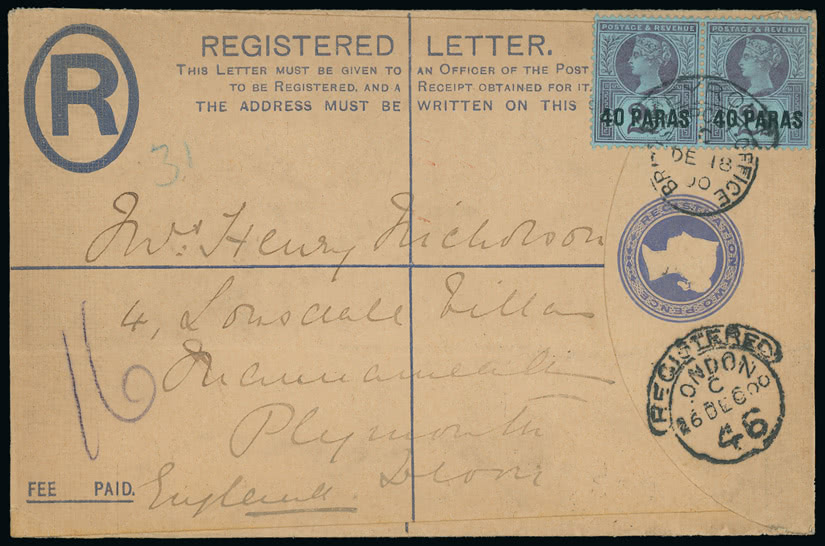 R
REGISTERED LETTER.
THIS LETTER MUST BE GIVEN TO AN OFFICER OF THE POST
TO BE REGISTERED, AND A RECEIPT OBTAINED FOR IT.
THE ADDRESS MUST BE WRITTEN ON THIS S
POSTAGE & REVENUE POSTAGE & REVENUE
40 PARAS 40 PARAS
BRI OFFICE
DE 18
00
REGISTRATION TWO PENCE
31
Mrs Henry Nicholson
4, Lonsdale Villas
Plymouth
Devon
England
16
REGISTERED
LONDON
C
26 DEC 00
46
FEE PAID.